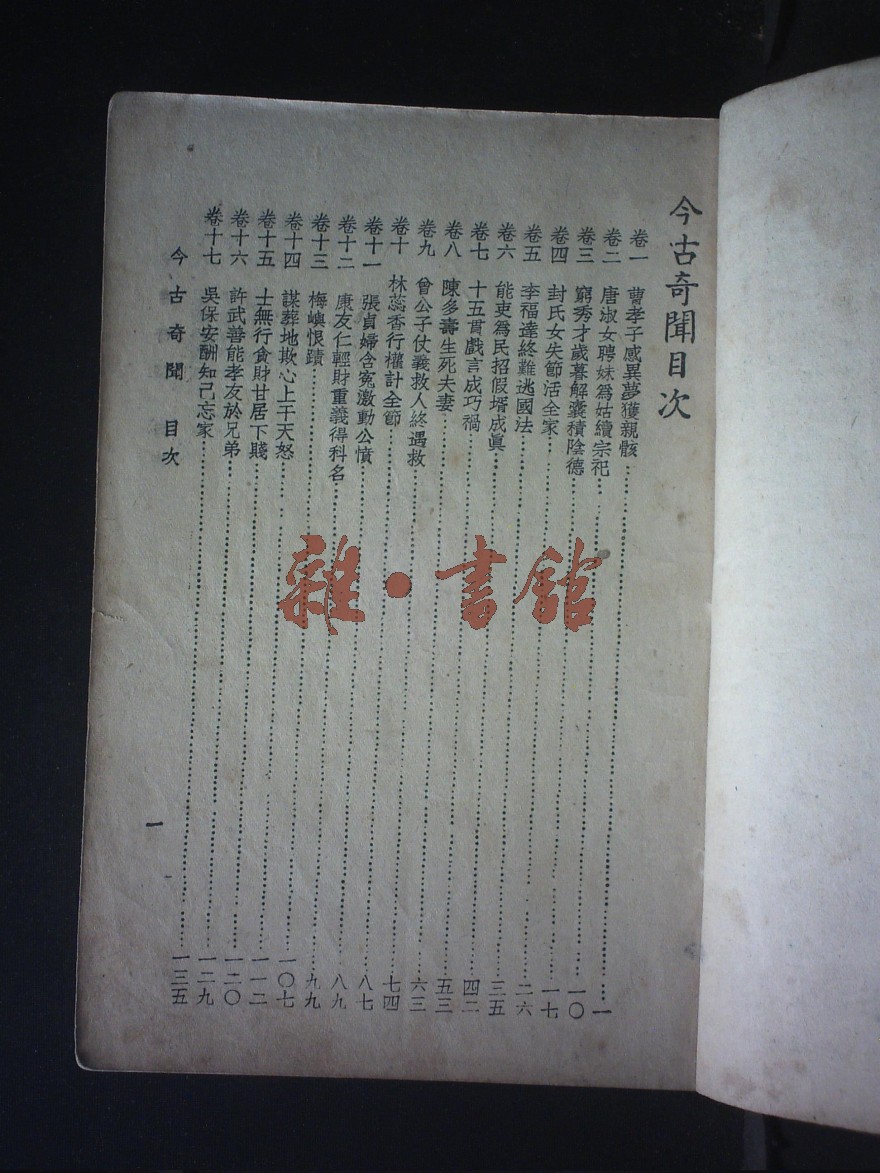 今古奇聞目次
卷一 曹孝子感異夢獲親骸……一
卷二 唐淑女聘妹爲姑續宗祀……一〇
卷三 窮秀才歲暮解囊積陰德……一七
卷四 封氏女失節活全家……二六
卷五 李福達終難逃國法……三五
卷六 能吏爲民招假壻成眞……四二
卷七 十五貫戲言成巧禍……五三
卷八 陳多壽生死夫妻……六三
卷九 曾公子仗義救人終遇救……七四
卷十 林蕊香行權計全節……八七
卷十一 張貞婦含冤激動公憤……八九
卷十二 康友仁輕財重義得科名……九九
卷十三 梅嶼恨蹟……一〇七
卷十四 謀葬地欺心上干天怒……一一二
卷十五 士無行貪財甘居下賤……一二〇
卷十六 許武善能孝友於兄弟……一二九
卷十七 吳保安酬知己忘家……一三五
今古奇聞 目次
一
雜·書館